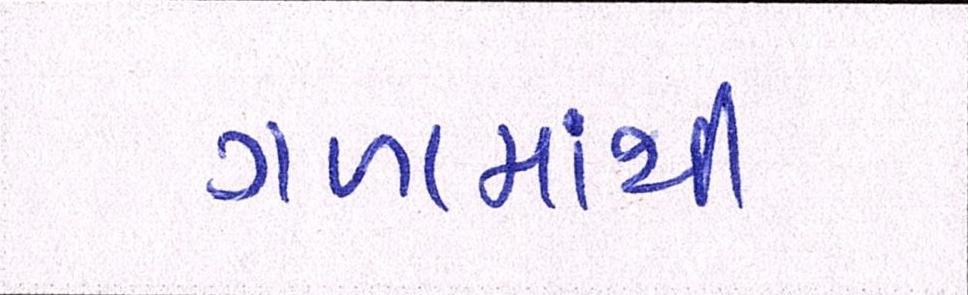 ગળામાંથી